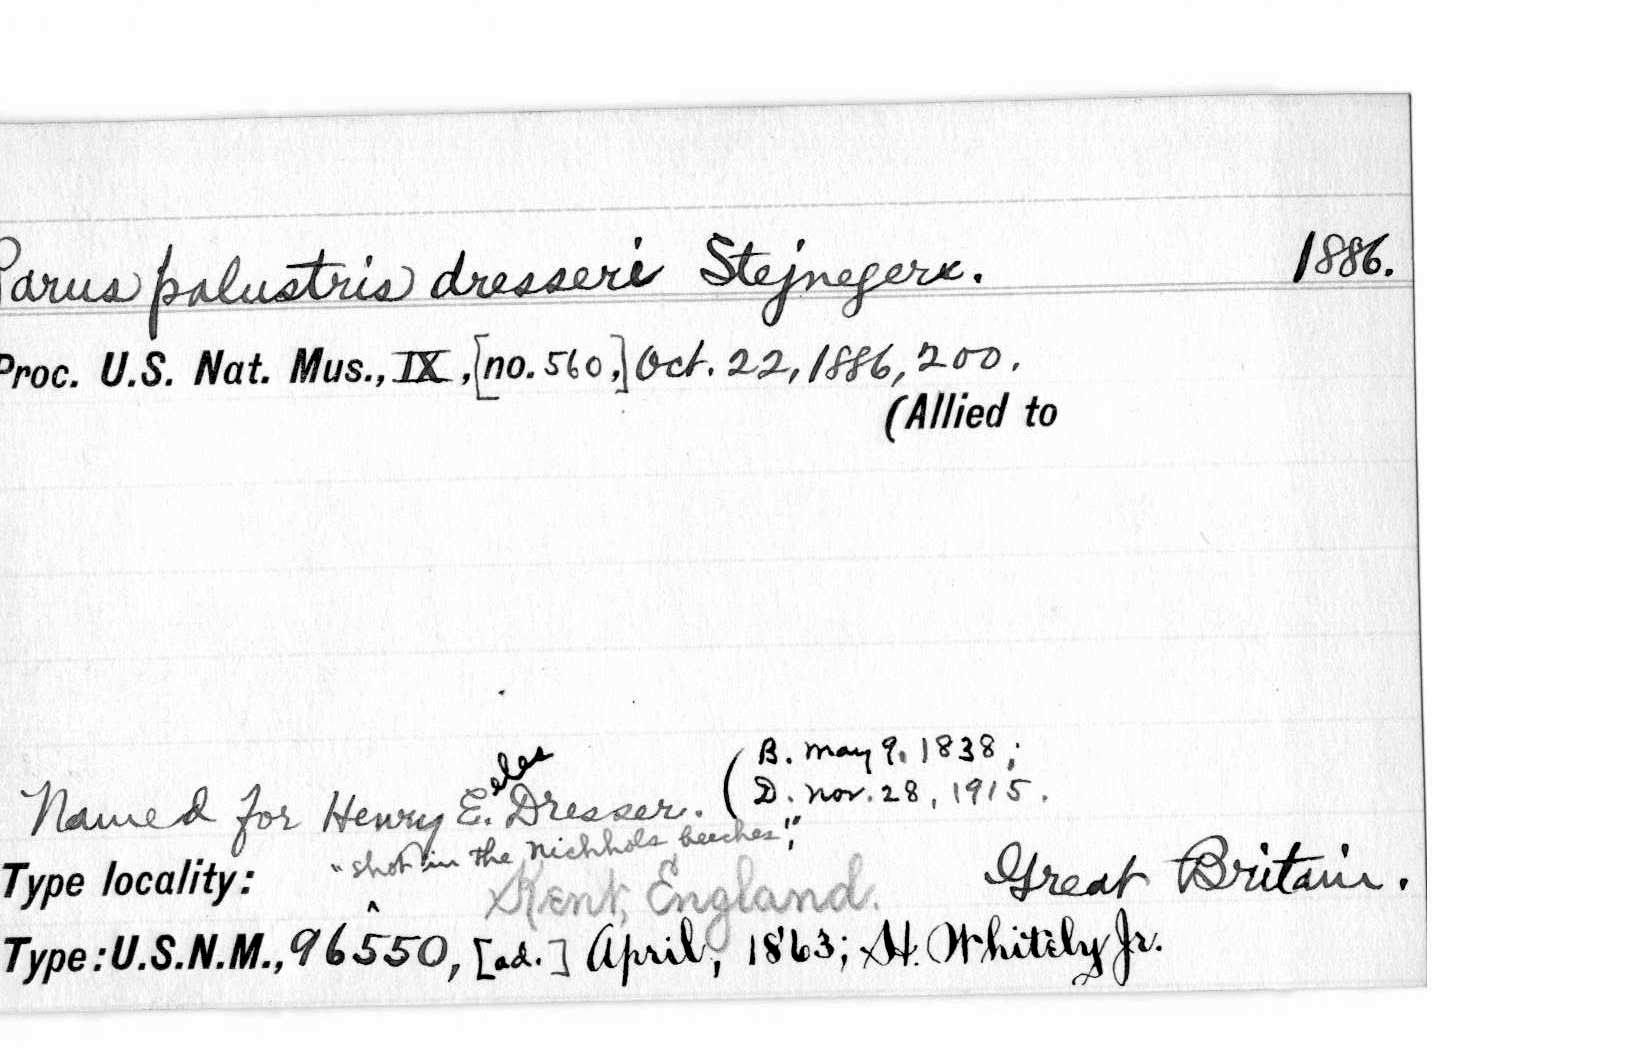 Parus palustris dresseri Stejneger. 1886.
Proc. U.S. Nat. Mus., IX, [no. 560,] Oct. 22, 1886, 200.
(Allied to
Named for Henry E.eles Dresser. (B. May 9, 1838;
D. Nov. 28, 1915.
"shot in the Nichhols beeches",
Type locality: Kent, England. Great Britain.
Type: U.S.N.M., 96550, [ad.] April, 1863; H. Whitely Jr.